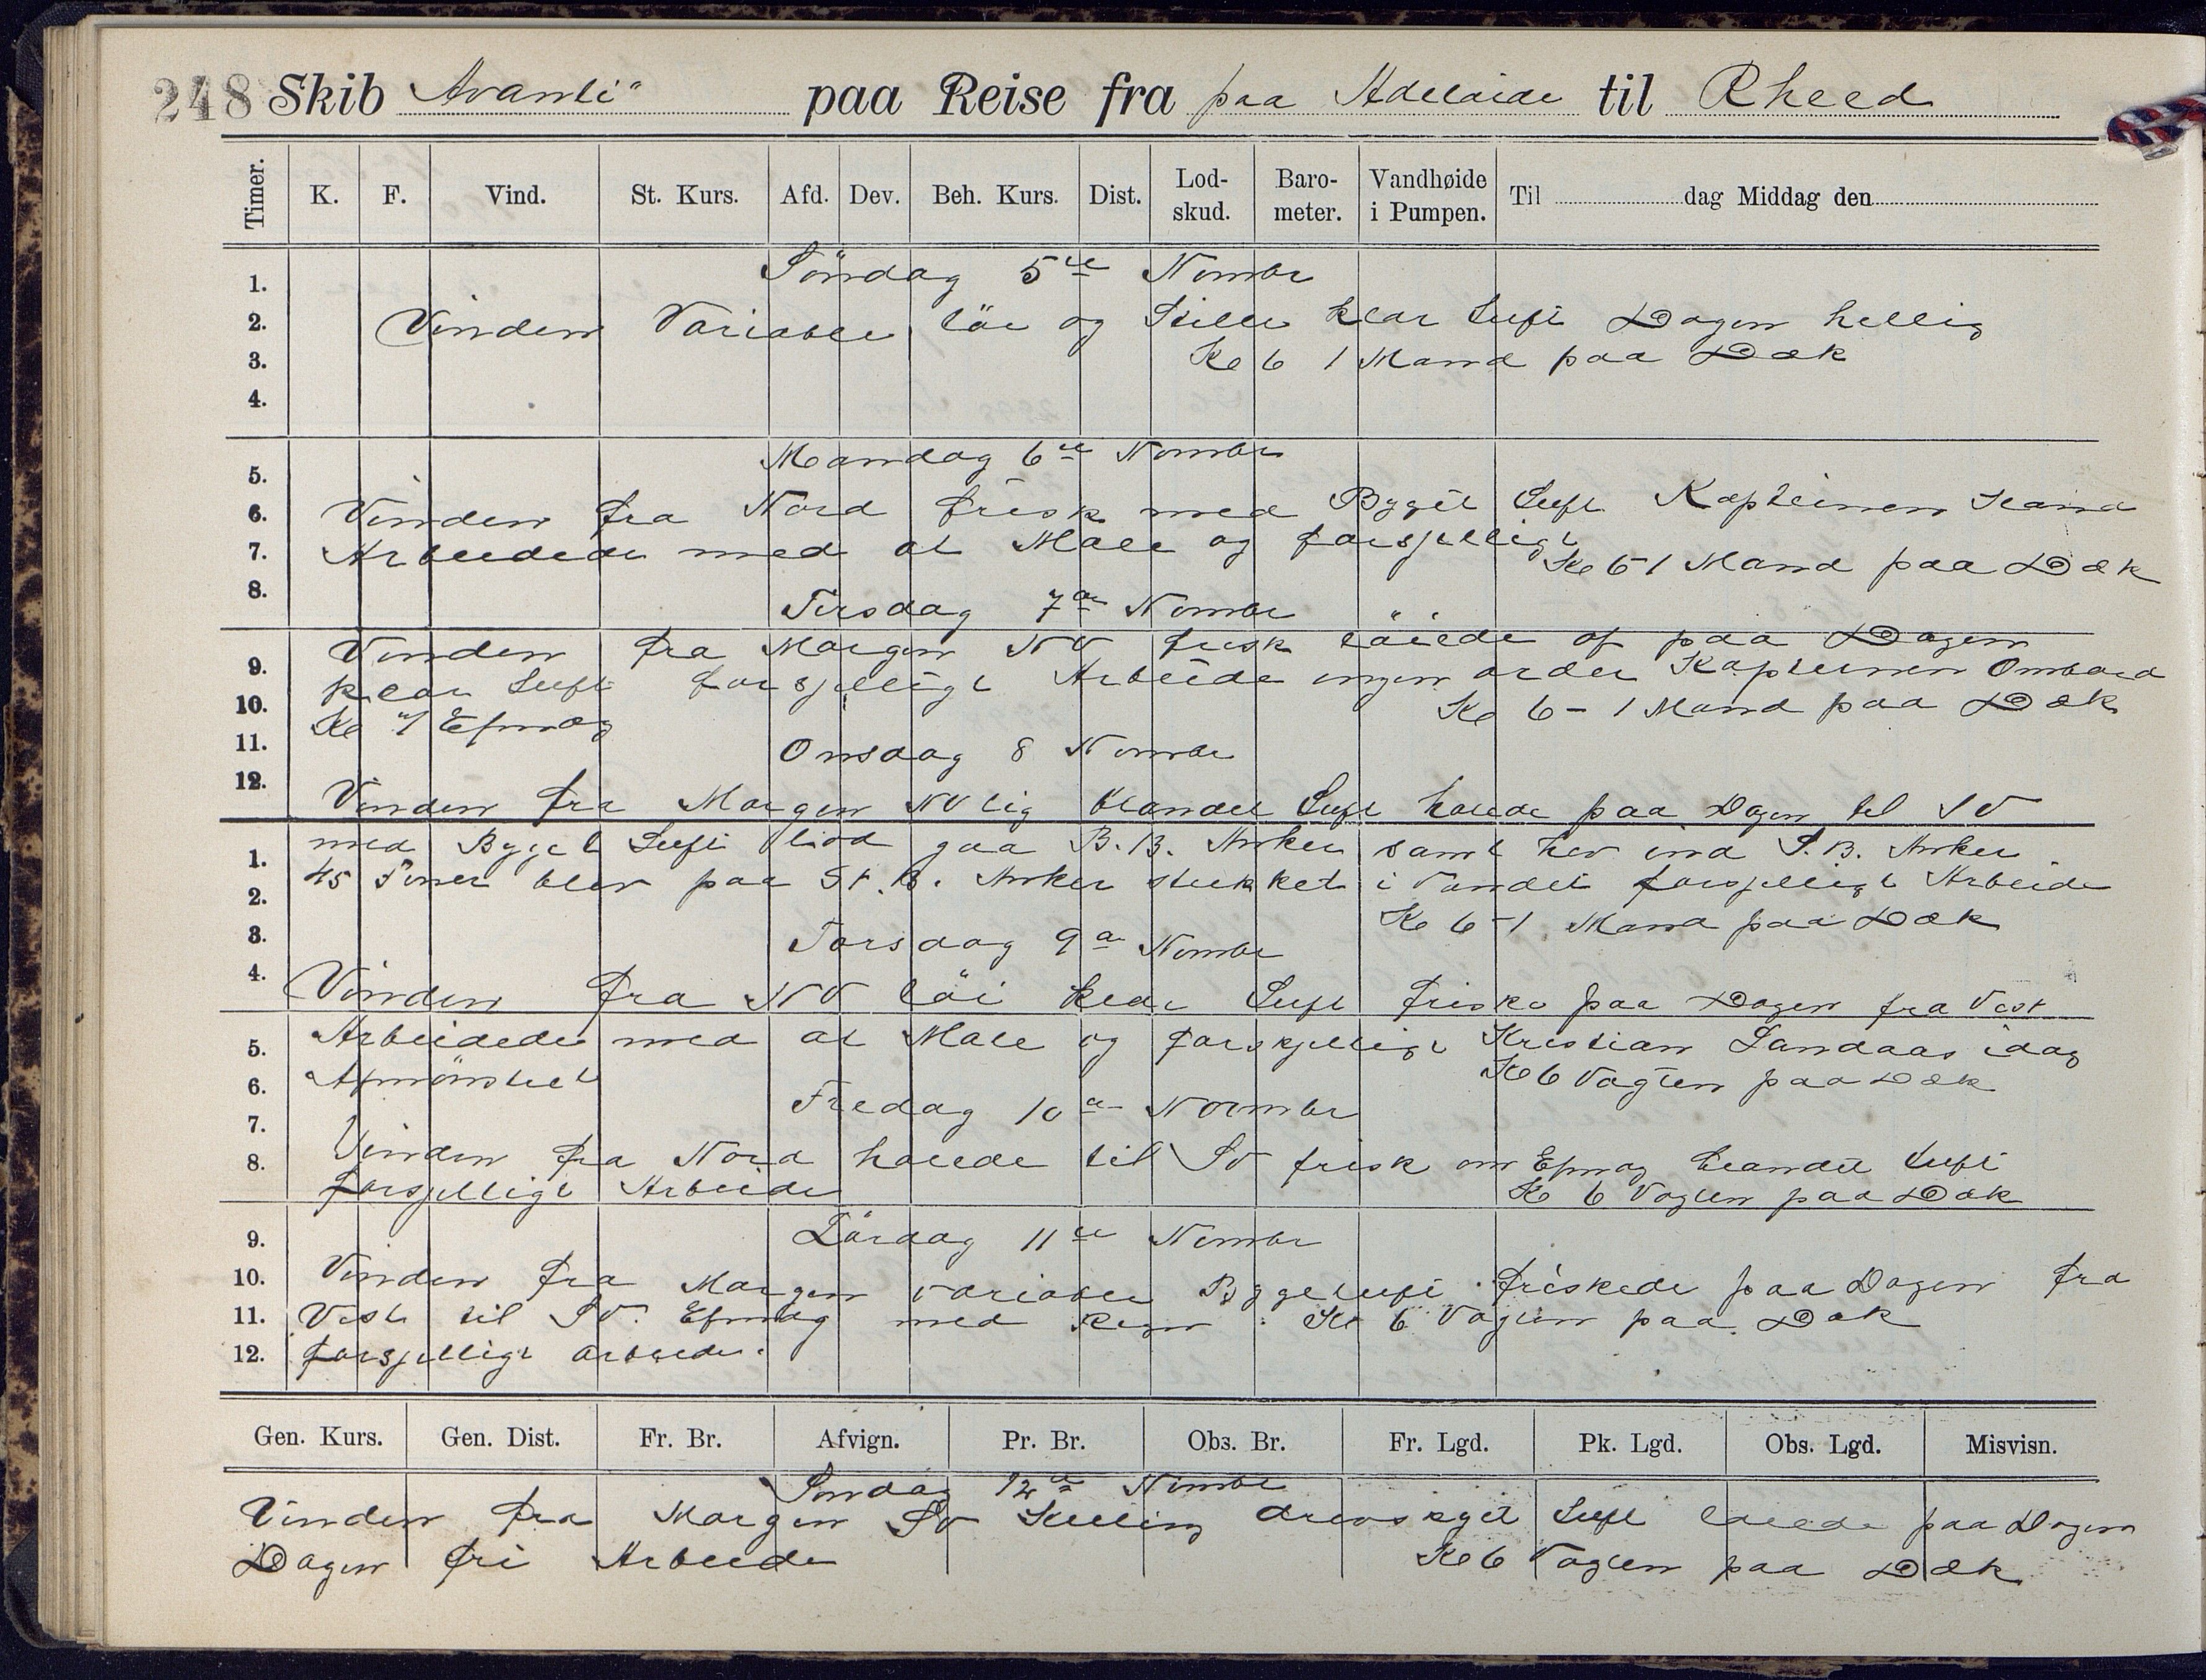 248 Skib Avanti" paa Reise fra paa Adelaide til Rheed
Timer. K. F. Vind. St. Kurs. Afd. Dev. Beh. Kurs. Dist. Lod-skud. Baro-meter. Vandhøide i Pumpen. Til dag Middag den
1. Söndag 5te Nombr
2. Vinden Variable löi og Stille klar Luft Dagen hellig
3. Kl 6 1 Mand paa Dæk
4.
5. Mandag 6te Nombr
6. Vinden fra Nord frisk med Byget Luft Kapteinen iland
7. Arbeidede med at Male og forsjelligt Kl 6-1 Mand paa Dæk
8. Tirsdag 7de Nombr
9. Vinden fra Morgen NV frisk löiede af paa Dagen
klar Luft forsjelligt Arbeide ingen order Kapteinen Ombord
10. Kl Efmdg Kl 6 - 1 Mand paa Dæk
11. Onsdag 8 Nombr
12. Vinden fra Morgen NVlig blandet Luft halede paa Dagen til SV
1. med Byget Luft lod gaa B.B. Anker samt hev ind S.B. Anker
2. 45 Favner blev paa St.B. Anker stukket i Vandet forsjelligt Arbeide
3. Kl 6-1 Mand paa Dæk
Torsdag 9de Nombr
4. Vinden fra NV löi Luft frisk paa Dagen fra Vest
5. Arbeidede med at Male og forskjelligt Kristian Landaas idag
6. Afmönstret Kl 6 Vagten paa Dæk
7. Fredag 10de Novmbr
8. Vinden fra Nord halede til SV frisk om Efmdg blandet Luft
forsjelligt Arbeide Kl 6 Vagten paa Dæk
9. Lördag 11te Nombr
10. Vinden fra Morgen variabel Bygeluft friskede paa Dagen fra
11. Vest til SV. Efmdg med Regn. Kl 6 Vagten paa Dæk
12. forsjelligt arbeide.
Gen. Kurs. Gen. Dist. Fr. Br. Afvign. Pr. Br. Obs. Br. Fr. Lgd. Pk. Lgd. Obs. Lgd. Misvisn.
Söndag 12te Nombr
Vinden fra Morgen SV Kuling Luft löiede paa Dagen
Dagen fri Arbeide Kl 6 Vagten paa Dæk